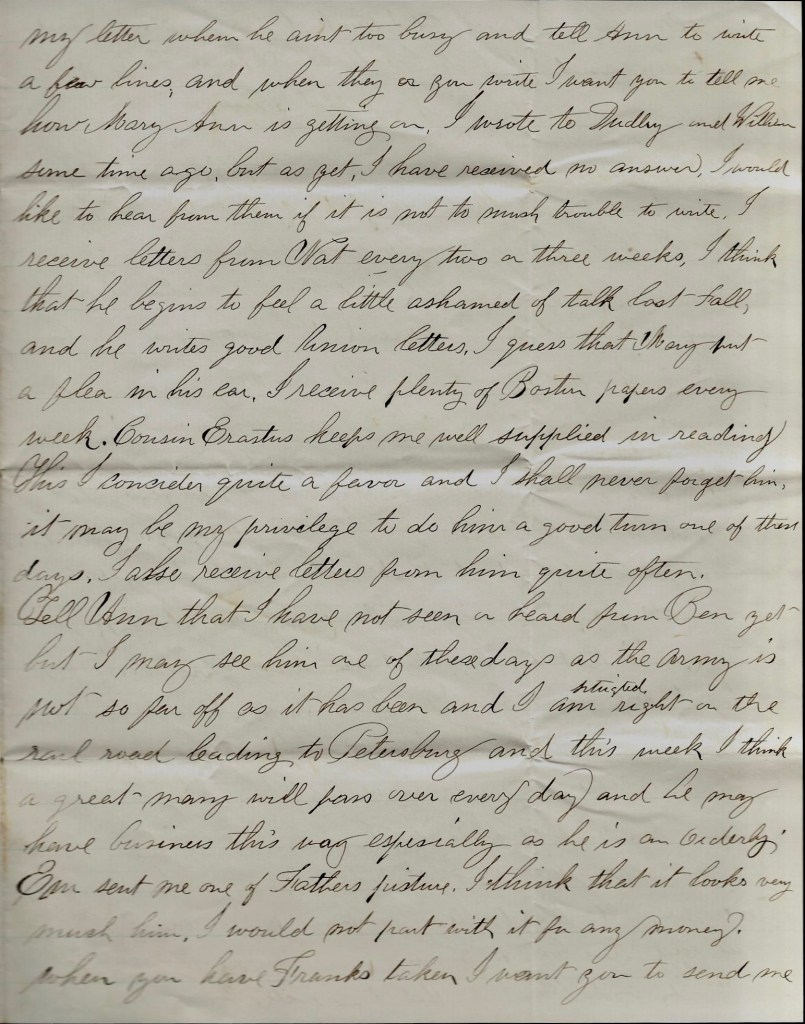 my letter whem he aint too busy and tell Ann to write
a few lines, and when they or you write I want you to tell me
how Mary Ann is getting on. I wrote to Dudley and William
some time ago, but as yet, I have received no answer, I would
like to hear from them if it is not to mush trouble to write. I
receive letters from Nat every two or three weeks, I think
that he begins to feel a little ashamed of talk last Fall,
and he writes good Union letters. I guess that Mary put
a flea in his ear. I receive plenty of Boston papers every
week. Cousin Erastus keeps me well supplied in reading
This I concider quite a favor and I shall never forget him,
it may be my privilege to do him a good turn one of these
days. I also receive letters from him quite often.
Tell Ann that I have not seen or heard from Ben yet
but I may see him one of these days as the army is
not so far off as it has been and I am situigted right on the
rail road leading to Petersburg and this week I think
a great many will pass over every day and he may
have business this way espesially as he is an Orderly,
Em sent me one of Fathers picture. I think that it looks very
much him, I would not part with it for any money.
when you have Franks taken I want you to send me